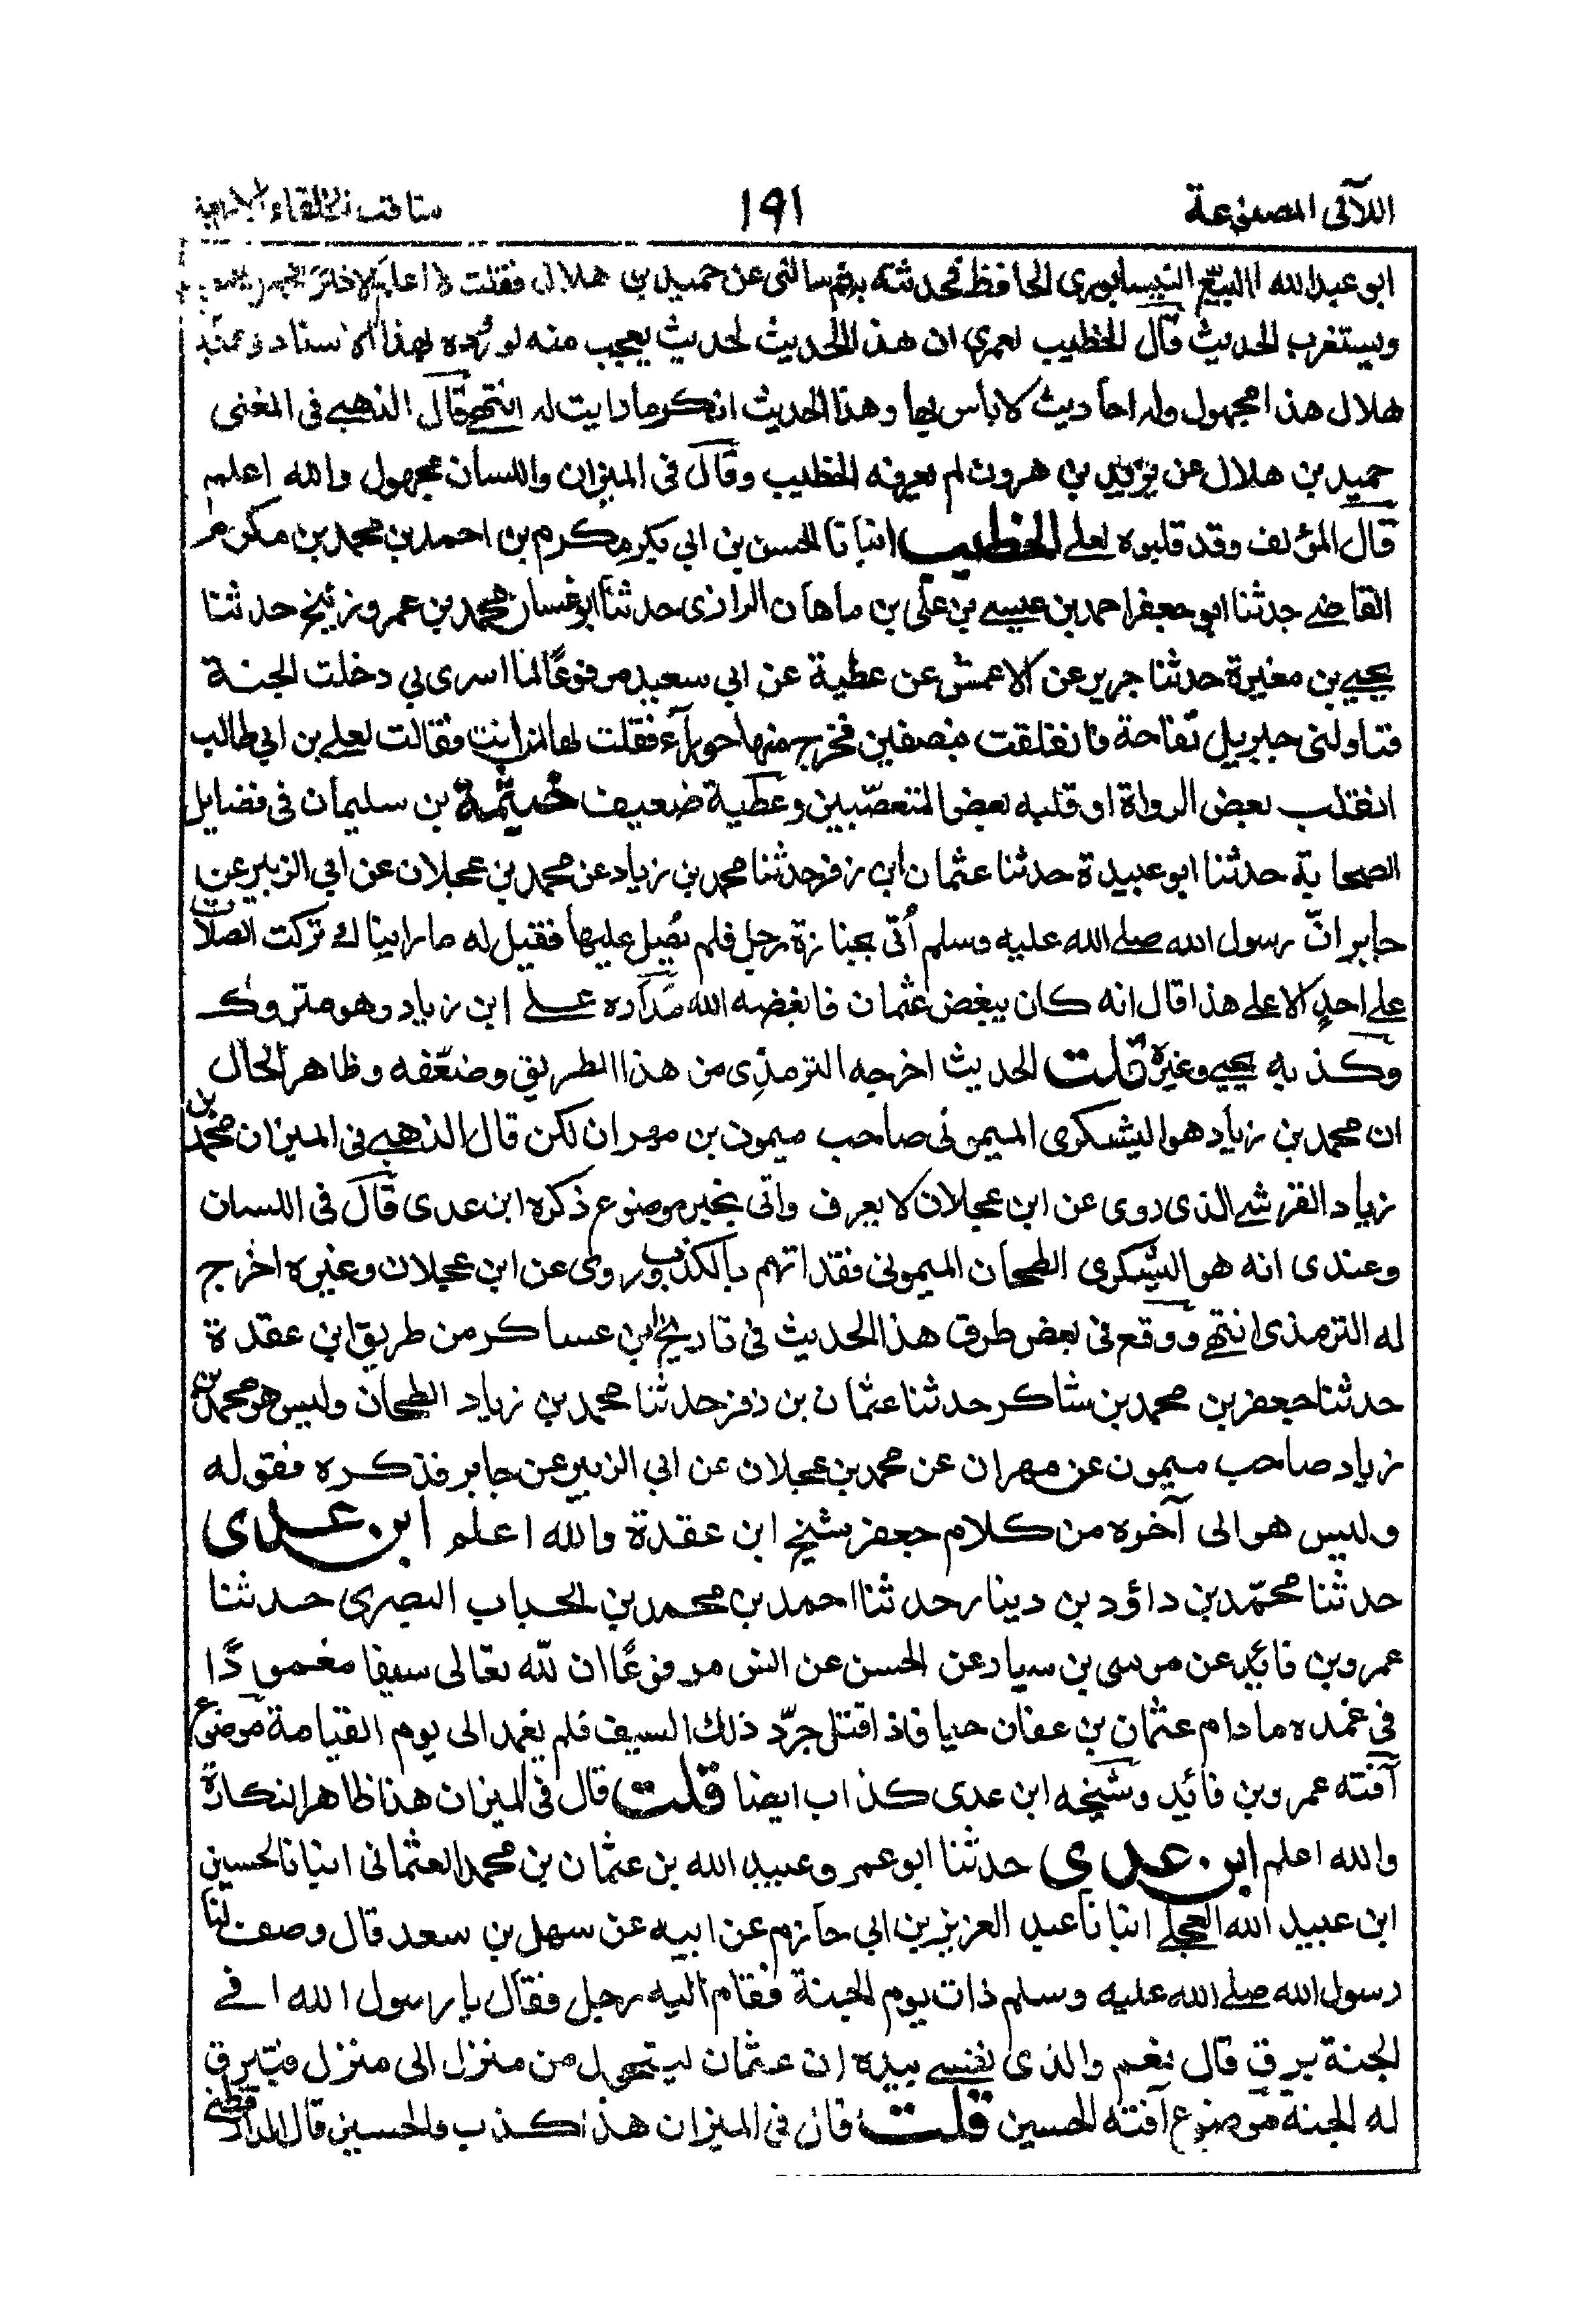 اللآلى المصنوعة ١٩١ مناقب الخلفاء الاربعة
ابو عبد الله البيع النيسابورى الحافظ فحدثته به ثم سالنى عن حميد بن هلال فقلت لا اعلم الا
ويستغرب الحديث قال الخطيب لعمرى ان هذا الحديث لحديث يعجب منه لوروده بهذا الاسناد وعندى
هلال هذا مجهول وله احاديث لا باس بها وهذا الحديث انكر ما رايت له انتهى قال الذهبى فى المغنى
حميد بن هلال عن يزيد بن هرون لم يعرفه الخطيب وقال فى الميزان واللسان مجهول والله اعلم
قال المؤلف وقد قلبوه لعلى الخطيب انبانا الحسن بن ابى بكر مكرم بن احمد بن محمد بن مكرم
القاضى حدثنا ابو جعفر احمد بن عيسى بن على بن ماهان الرازى حدثنا ابو غسان محمد بن عمرو زنيج حدثنا
يحيى بن مغيرة حدثنا جرير عن الاعمش عن عطية عن ابى سعيد مرفوعًا لما اسرى بى دخلت الجنة
فناولنى جبريل تفاحة فانفلقت بنصفين فخرج منها حوراء فقلت لها لمن انت فقالت لعلى بن ابى طالب
انقلب بعض الرواة او قلبه بعض المتعصّبين وعطية ضعيف خيثمة بن سليمان فى فضايل
الصحابة حدثنا ابو عبيدة حدثنا عثمان ابن زفر حدثنا محمد بن زياد عن محمد بن عجلان عن ابى الزبير عن
جابر انّ رسول الله صلى الله عليه وسلم اُتى بجنازة رجل فلم يُصل عليها فقيل له ما رايناك تركت الصلاة
على احدٍ الا على هذا قال انه كان يبغض عثمان فابغضه الله مداره على ابن زياد وهو متروك
وكذبه يحيى وغيره قلت الحديث اخرجه الترمذى من هذا الطريق وضعّفه وظاهر الحال
ان محمد بن زياد هو اليشكرى الميمونى صاحب ميمون بن مهران لكن قال الذهبى فى الميزان محمد بن
زياد القرشى الذى روى عن ابن عجلان لا يعرف واتى بخبر موضوع ذكره ابن عدى قال فى اللسان
وعندى انه هو اليشكرى الطحان الميمونى فقد اتهم بالكذب وروى عن ابن عجلان وغيره اخرج
له الترمذى انتهى ووقع فى بعض طرق هذا الحديث فى تاريخ ابن عساكر من طريق ابن عقدة
حدثنا جعفر بن محمد بن شاكر حدثنا عثمان بن زفر حدثنا محمد بن زياد الطحان وليس هو محمد بن
زياد صاحب ميمون عن مهران عن محمد بن عجلان عن ابى الزبير عن جابر فذكره فقوله
وليس هو الى آخره من كلام جعفر شيخ ابن عقدة والله اعلم ابن عدى
حدثنا محمّد بن داؤد بن دينار حدثنا احمد بن محمد بن الحباب البصرى حدثنا
عمرو بن فائد عن موسى بن سيار عن الحسن عن انس مرفوعًا ان لله تعالى سيفا مغمودًا
فى غمده ما دام عثمان بن عفان حيا فاذا قتل جرّد ذلك السيف فلم يغمد الى يوم القيامة موضوع
آفته عمرو بن فائد وشيخه ابن عدى كذاب ايضا قلت قال فى الميزان هذا ظاهر النكارة
والله اعلم ابن عدى حدثنا ابو عمر وعبيد الله بن عثمان بن محمد العثمانى انبانا الحسين
ابن عبيد الله العجلى انبانا عبد العزيز بن ابى حازم عن ابيه عن سهل بن سعد قال وصف لنا
رسول الله صلى الله عليه وسلم ذات يوم الجنة فقام اليه رجل فقال يا رسول الله افى
الجنة برق قال نعم والذى نفسى بيده ان عثمان ليتحول من منزل الى منزل فتبرق
له الجنة موضوع آفته الحسين قلت قال فى الميزان هذا كذب والحسين قال الدارقطنى